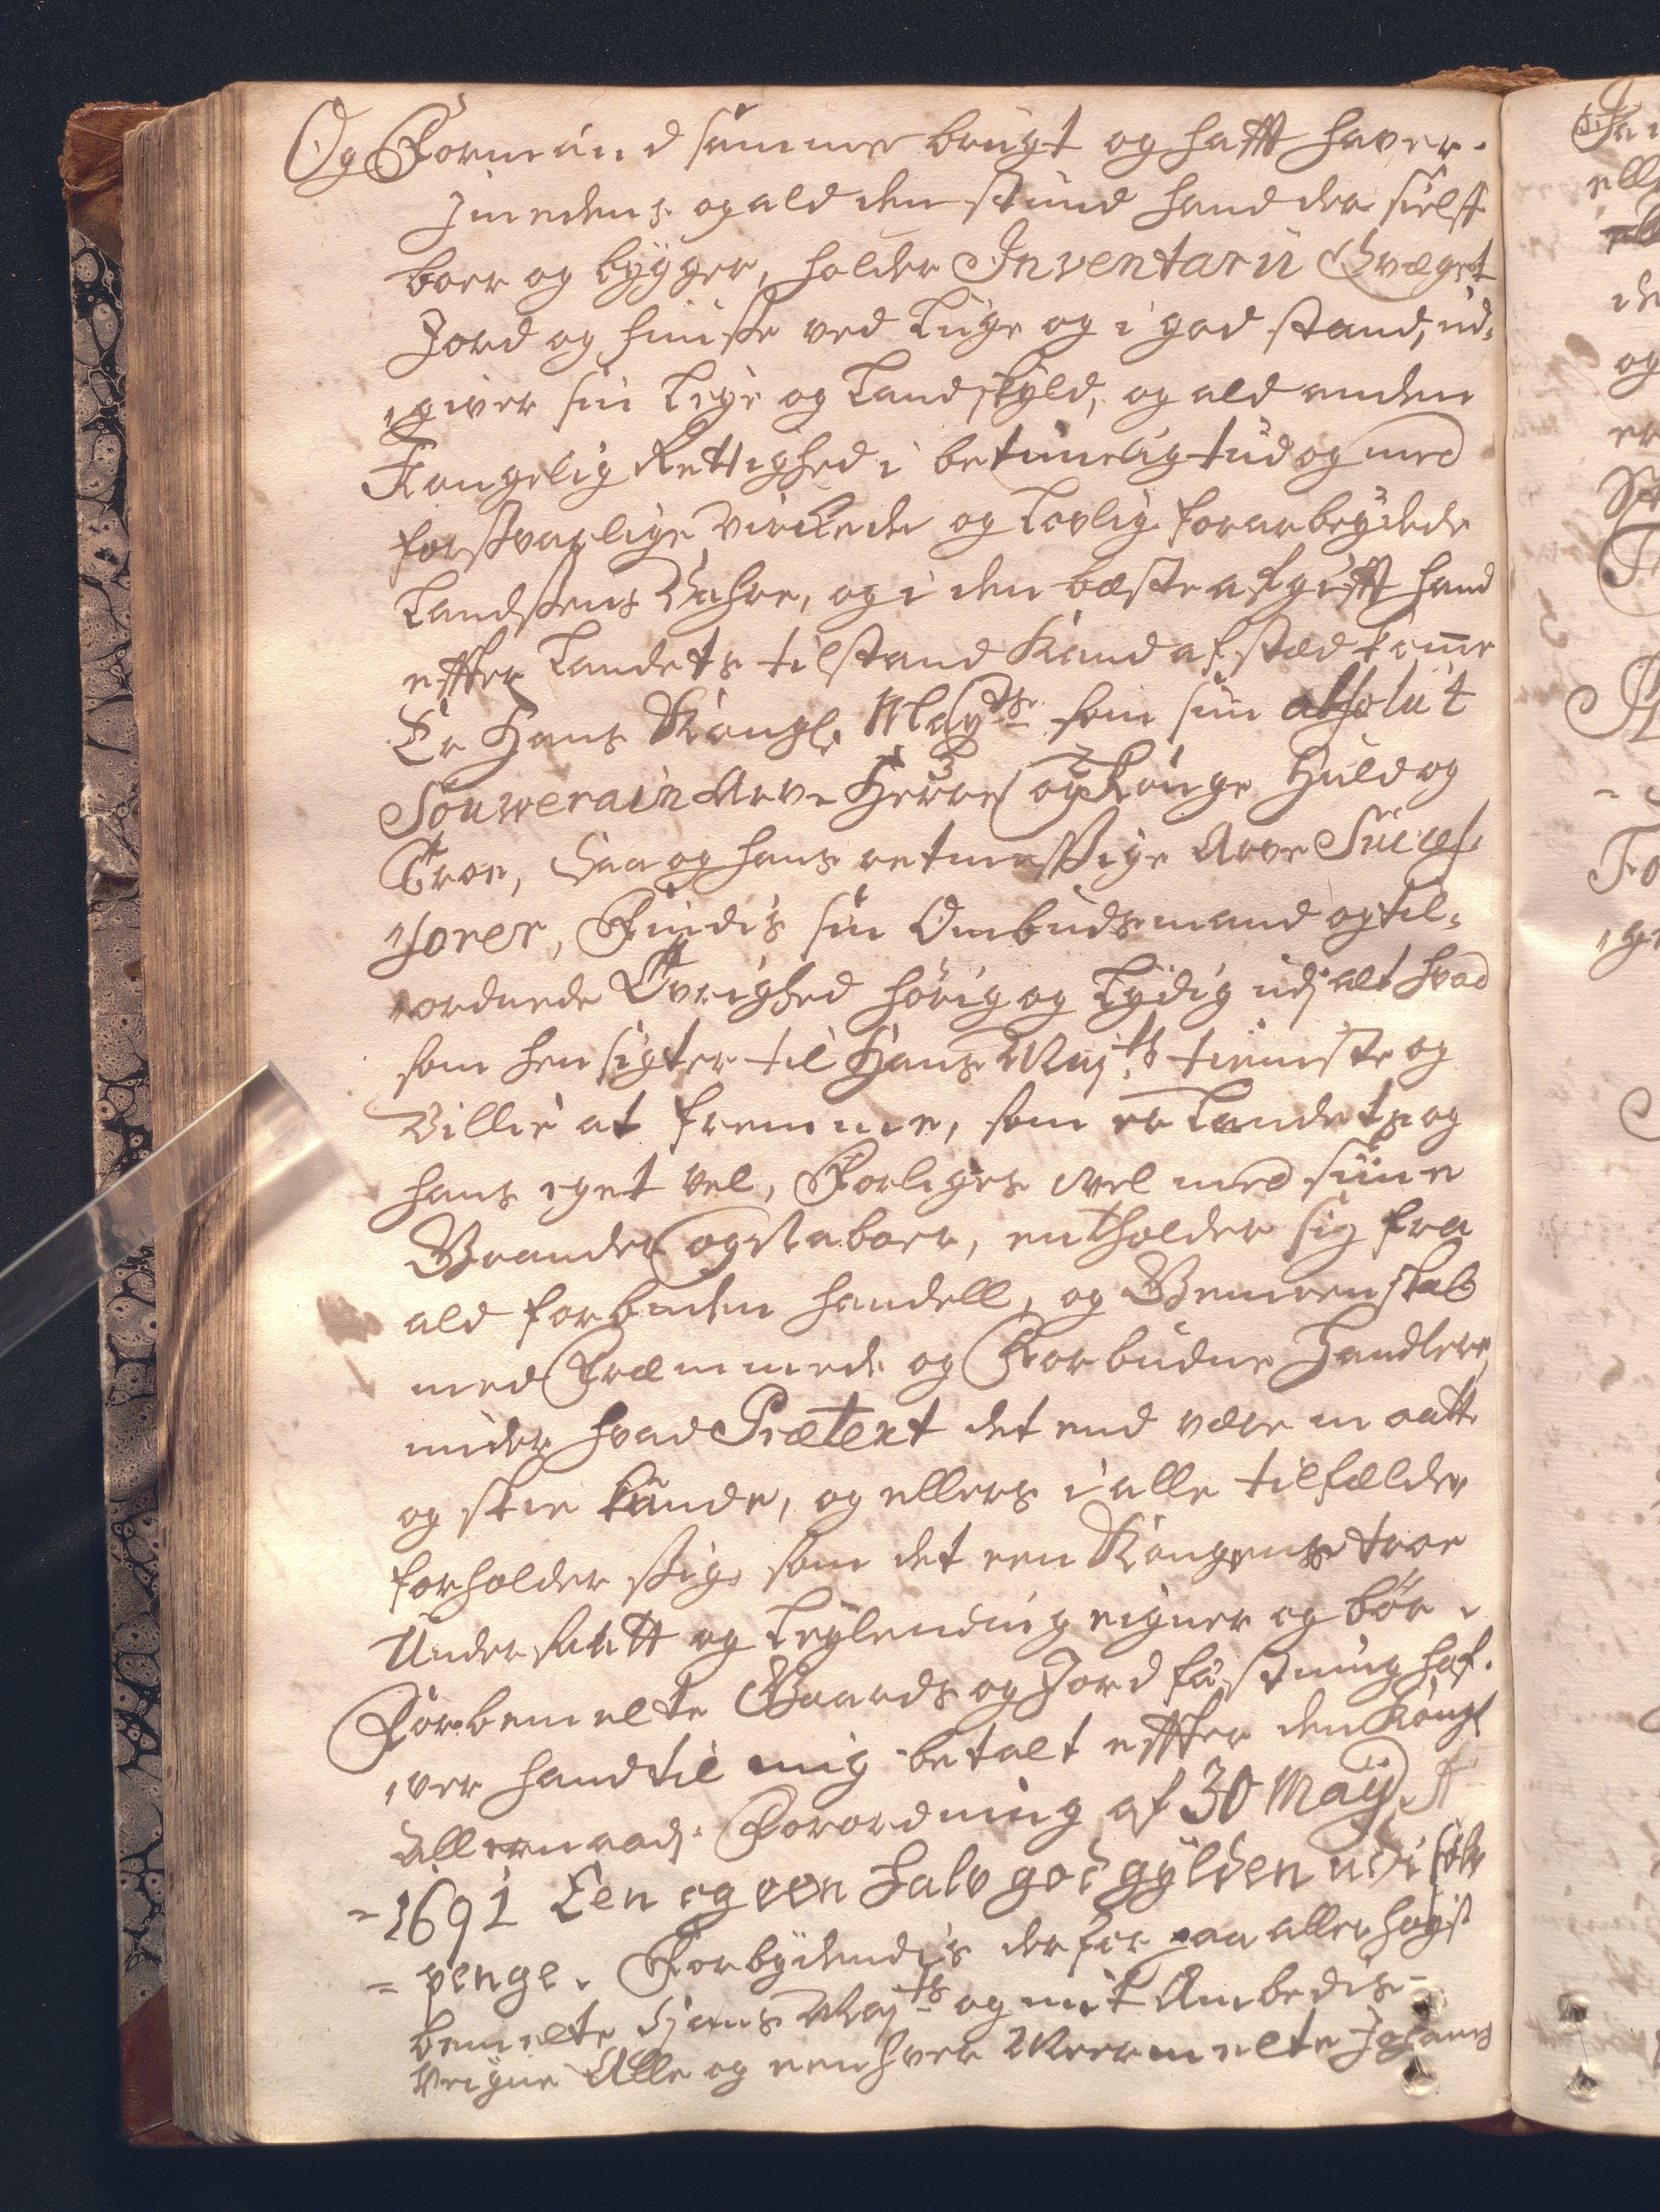 Og Formünd samme brugt og hafft haver.
Jmedens og ald den stünd hand der sielff
boer og bygger, holder Inventarii Qvæget
Jord og huusse ved Lüge og i god stand, ud-
giver sin Leye og Landskyld, og ald anden
Kongelig Rettighed i betimelig tüd og med
forssvarlige virckede og Lovlig forarbeydede
Landssens Vahre, og i den bæste afgifft hand
effter Landets tilstand Kand afsted komme
Er Hans Kongl. Mayts som sin absolut
Souverain Arve Herre og Konge Huld og
Troe, Saa og hans retmessige Arve Succes-
sorer, Findis sin Ombudsmand og til-
ordnede Øvrighed hörig og Lydig udj alt hvad
som hensigter til Hans Majts tieniste og
Villie at fremme, som er Landets og
hans eget vel, Forliges vel med sine
Grander og Naboer, entholder sig fra
ald forbuden handell, og Gemeenskab
med Fræmmede og Forbudne Handlere
under hvad Prætext det end være maatte
og skee kunde, og ellers i alle tilfælde
forholder ssig, som det een Kongens troe
Undersaatt og Leylending eigner og bör.
Forbemelte Gaards og Jord fæstning haf-
ver hand til mig betalt effter den Kongl
Allernaadj. Forordning af 30 Maij A
1691 Een og een halv god gylden udi sölv
penge. Forbydendis derfor paa allerhöyst
bemelte Hans Majts og mit Ambedis
veigne Alle og eenhver Meermelte Johans